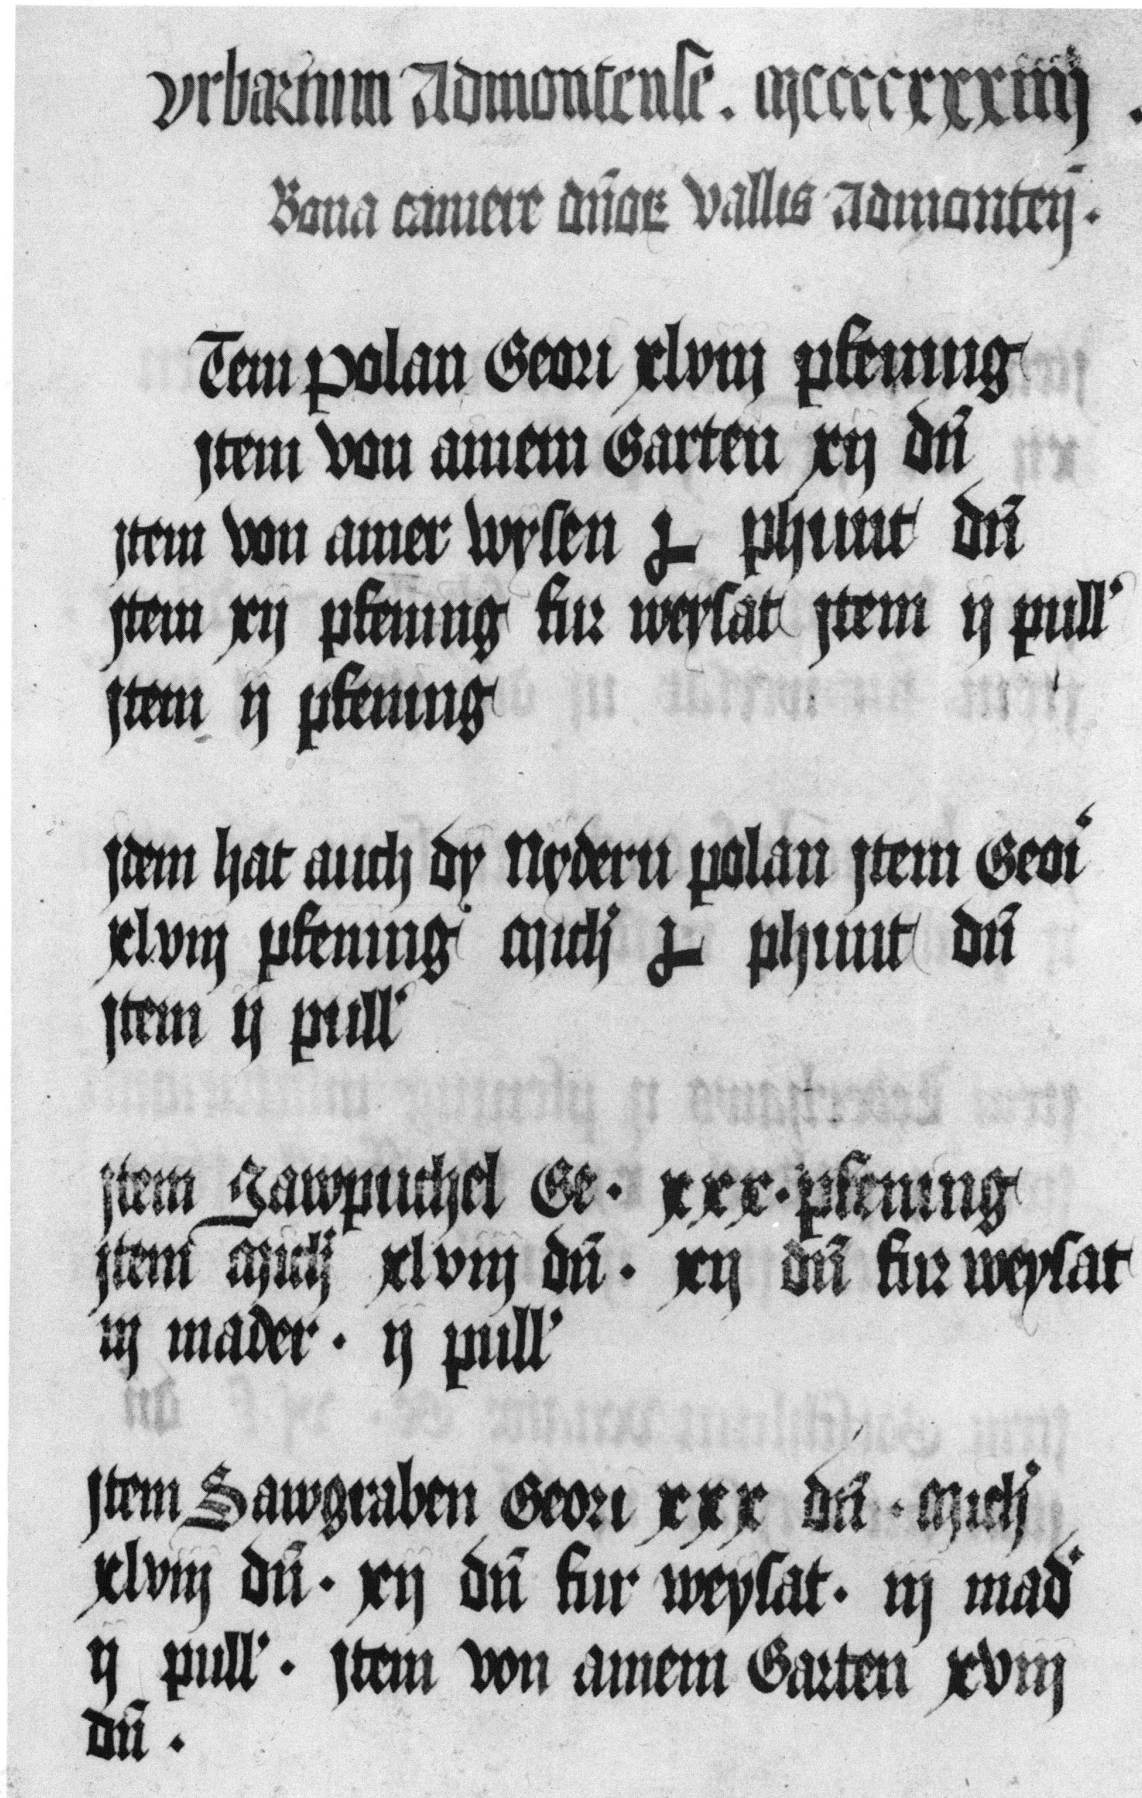 Urbarium Admontense . Mccccxxxiiij .
Bona camere dn̄oꝝ Vallis Admonten̄ .
Tem Polan Geori xlviij pfening
jtem von ainem Garten xij dn̄
jtem von ainer wysen phunt dn̄
jtem xij pfening fur weysat jtem ij pull'
jtem ij pfening
jdem hat auch dy Nydern polan jtem Geori
xlviij pfening Mich' phunt dn̄
jtem ij pull'
jtem Sawpuchel Ge . xxx . pfening
jtem Mich' xlviij dn̄ . xij dn̄ fur weysat
iij mader . ij pull'
jtem Sawgraben Geori xxx dn̄ . Mich'
xlviij dn̄ . xij dn̄ fur weysat . iij mad'
ij pull' . jtem von ainem Garten xviij
dn̄ .